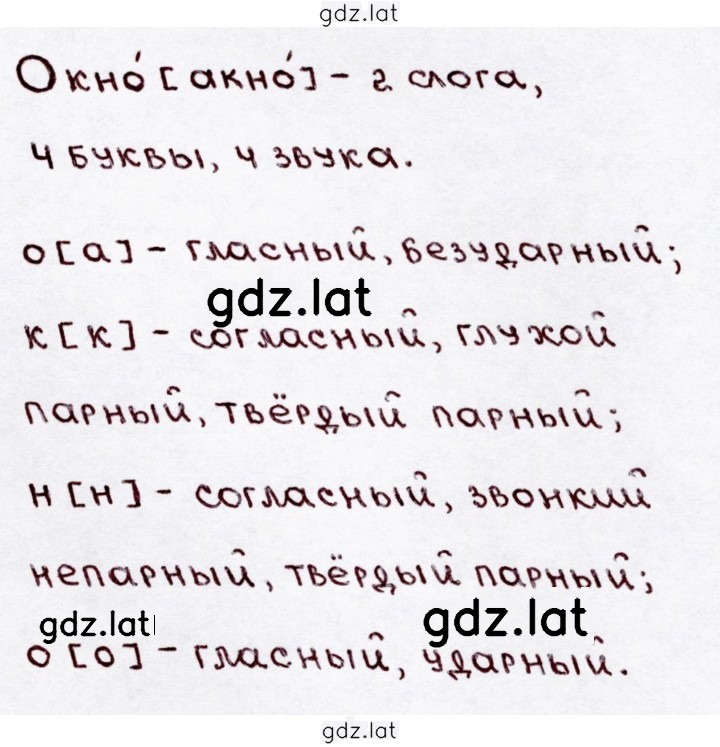 gdz.lat
Окно́ [акно́] - 2 слога,
4 буквы, 4 звука.
о [а] - гласный, безударный;
gdz.lat
к [к] - согласный, глухой
парный, твёрдый парный;
н [н] - согласный, звонкий
непарный, твёрдый парный;
gdz.lat gdz.lat
о [о] - гласный, ударный.
gdz.lat